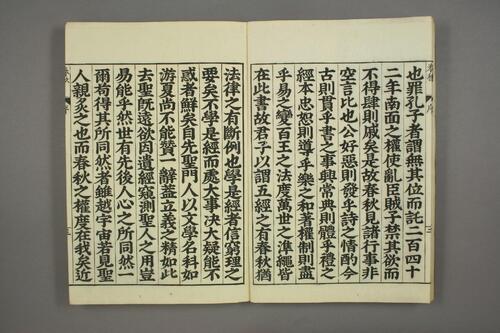 也罪孔子者謂無其位而託二百四十
二年南面之權使亂臣賊子禁其欲而
不得肆則戚矣是故春秋見諸行事非
空言比也公好惡則發乎詩之情酌今
古則貫乎書之事興常典則體乎禮之
經本忠恕則導乎樂之和著權制則盡
乎易之變百王之法度萬世之準繩皆
在此書故君子以謂五經之有春秋猶
法律之有斷例也學是經者信窮理之
要矣不學是經而處大事决大疑能不
惑者鮮矣自先聖門人以文學名科如
游夏尚不能贊一辭蓋立義之精如此
去聖旣遠欲因遺經窺測聖人之用豈
易能乎然世有先後人心之所同然一
爾苟得其所同然者雖越宇宙若見聖
人親炙之也而春秋之權度在我矣近